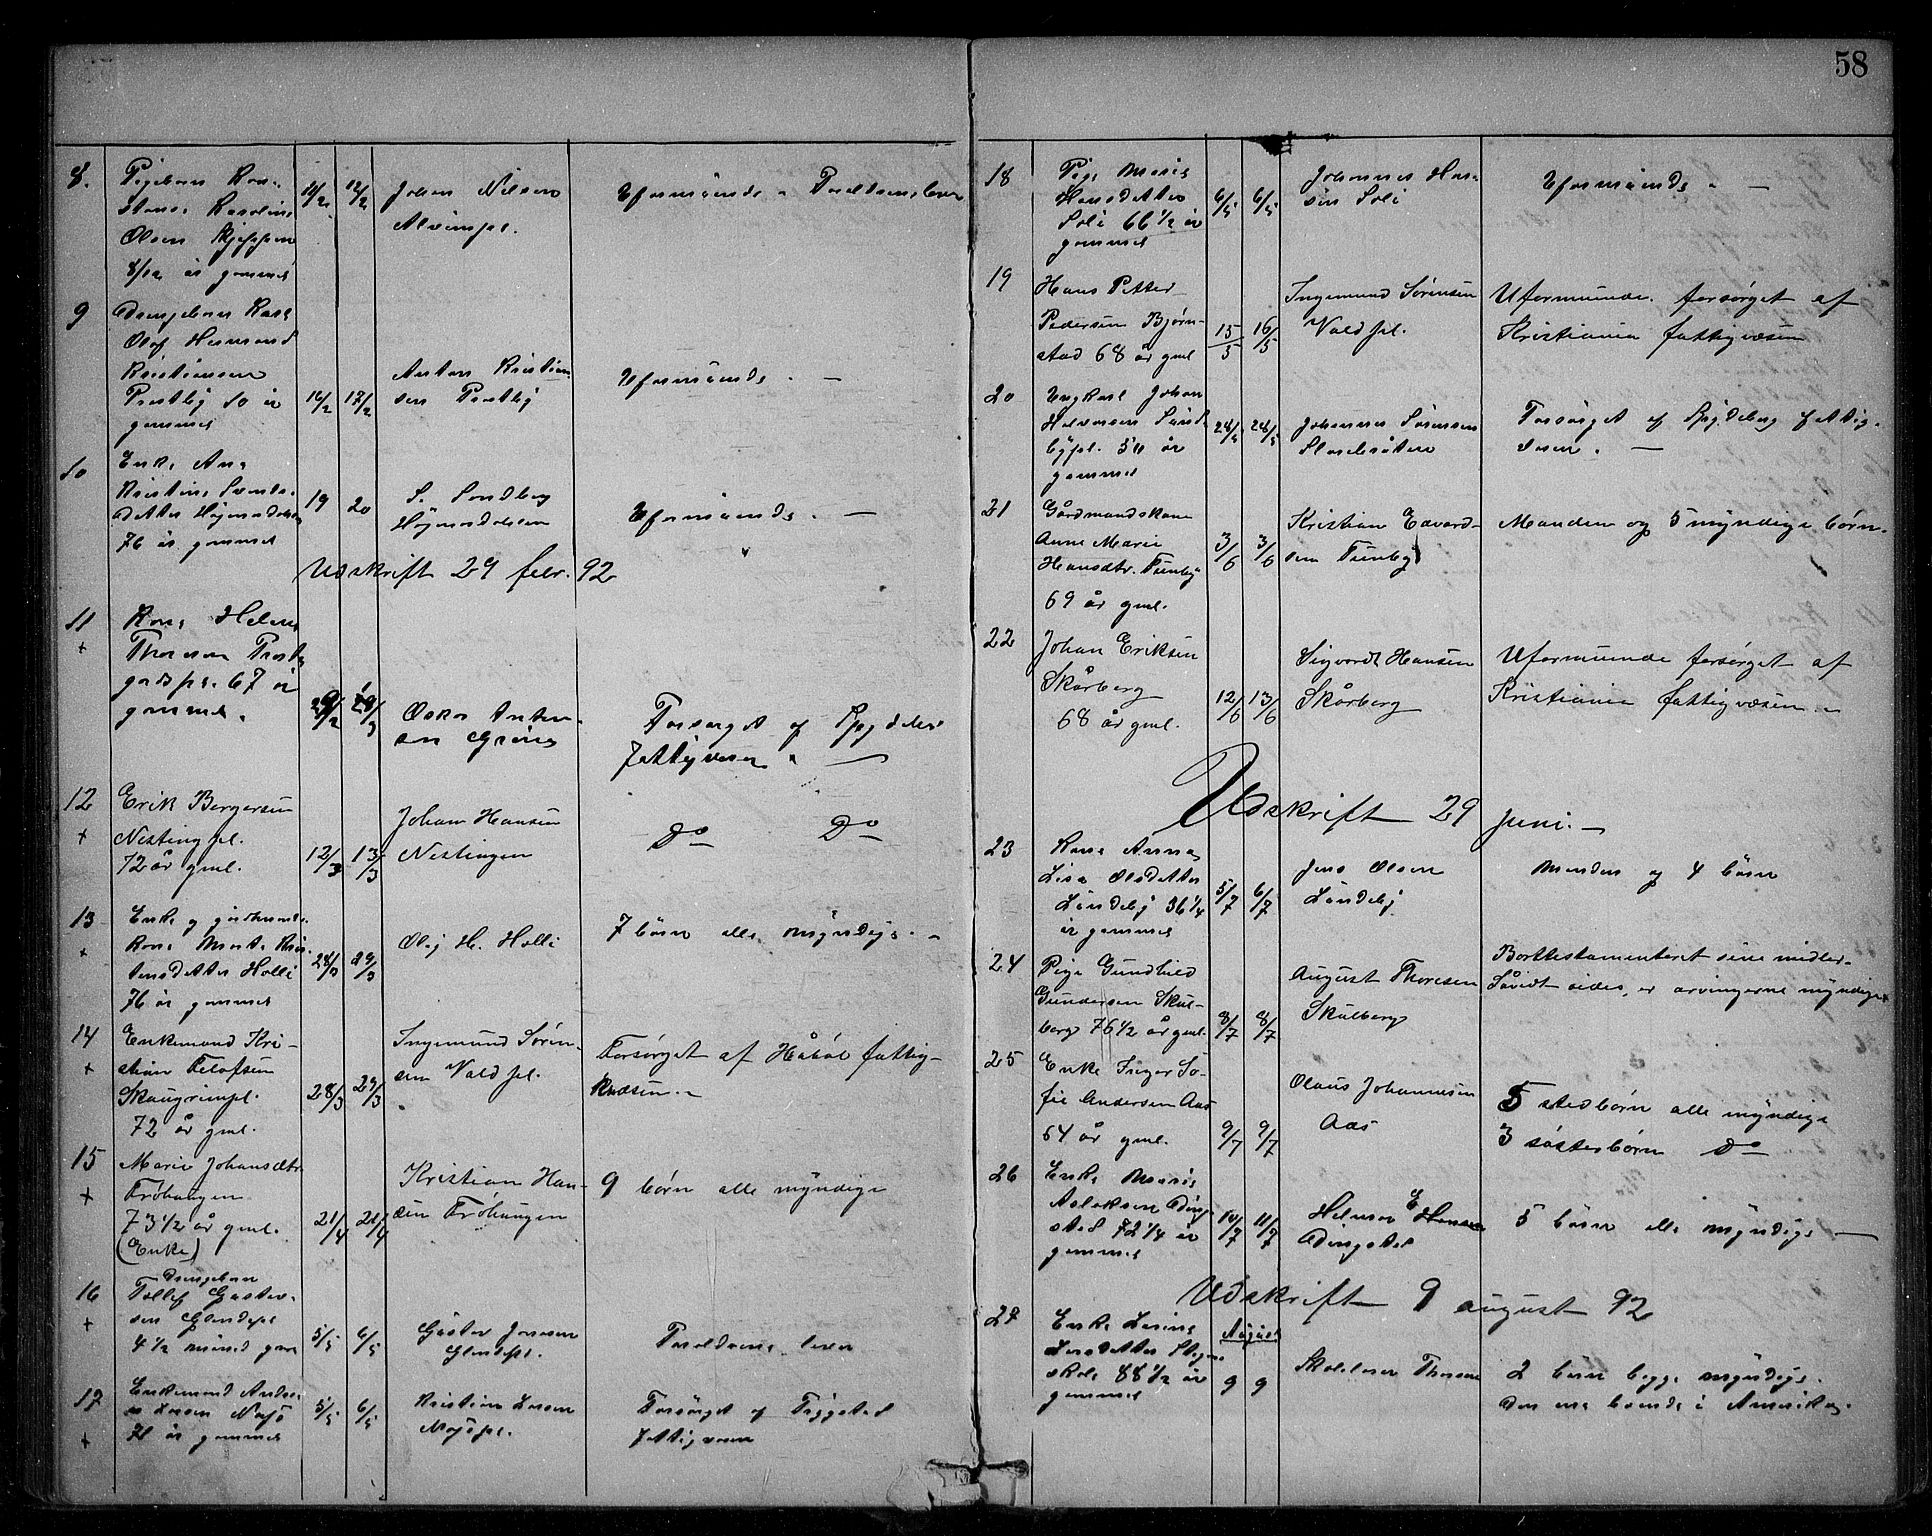 58
8.
Pigebarn
Olsen
8/12 år gammel
12/2
Johan Nilsen
Alvimpl.
Uformuende. Foreldrene lever
9
Drengebarn Karl
Olof Hermand
Kristiansen
Prestby 10 år
gammel
16/2 17/2
Anton Kristian-
sen Prestby
Uformuende. —
10
Enke Ane
Kristine Svends-
datter
76 år gammel
19 20
S. Sandberg
Uformuende. —
Udskrift 29 febr. 92
11
+
Kone Helene
Thoresen Prest-
gaardspl. 67 år
gammel.
Oskar Anton-
sen
Forsørget af Spydeberg
fattigvæsen. —
12
+
Erik Bergersen
Nestingpl.
72 år gml.
12/3 13/3
Johan Hansen
Nestingen
Do Do
13
+
Enke og gårdmands-
kone Marte Kris-
tensdatter Holli
76 år gammel
28/3 29/3
H. Holli
7 børn alle myndige. —
14
+
Enkemand Kri-
stian Elofsen
Skaugrimpl.
72 år gml.
28/3 29/3
Ingemund Søren-
sen Valdpl.
Forsørget af Håbøl fattig-
væsen. —
15
+
Marie Johansdtr.
Frøhaugen
73 1/2 år gml.
(Enke)
21/4 21/4
Kristian Han-
sen Frøhaugen
9 børn alle myndige
16
+
Drengebarn
Tollef Gustav-
sen Glendepl.
4 1/2 måned gam
5/5 6/5
Gustav Jensen
Glendepl.
Foreldrene lever
17
+
Enkemand Andre-
as Larsen
71 år gammel
5/5 6/5
Kristian Larsen
Forsørget af Trøgstad
fattigvæsen
18
Pige Marie
Hansdatter
Soli 66 1/2 år
gammel
6/5 6/5
Johannes Han-
sen Soli
Uformuende. —
19
Hans Petter
Pedersen Bjørn-
stad 68 år gml
15/5 16/5
Ingemund Sørensen
Valdpl.
Uformuende. forsørget af
Kristiania fattigvæsen
20
Ungkarl Johan
Halvorsen Sand-
bypl. 56 år
gammel
28/5 28/5
Johannes Sørensen
Forsørget af Spydeberg fattig-
væsen. —
21
Gårdmandskone
Anne Marie
Hansdtr. Tunby
69 år gml.
3/6 3/6
Kristian Edvard-
sen Tunby
Manden og 5 myndige børn.
22
Johan Eriksen
Skårberg
68 år gml.
12/6 13/6
Sigvardt Hansen
Skårberg
Uformuende forsørget af
Kristiania fattigvæsen. —
Udskrift 29 juni. —
23
Kone Anna
Lisa Olsdatter
Lindeby 36 1/4
år gammel
5/7 6/7
Jens Olsen
Lindeby
Manden og 4 børn
24
Pige Gunhild
Gundersen Skul-
berg 76 1/2 år gml.
8/7 8/7
August Thoresen
Skulberg
Borttestamenteret sine midler.
Såvidt vides, er arvingerne myndige
25
Enke Inger So-
fie Andersen Aas
64 år gml.
9/7 9/7
Olaus Johannesen
Aas
5 stedbørn alle myndige
3 søsterbørn Do
26
Enke Marie
Aslaksen Ding-
stad 72 1/4 år
gammel
10/7 11/7
Helmer E Hansen
Dingstad
5 børn alle myndige —
Udskrift 9 august 92
27
Enke
Larsdatter
88 1/2 år
gammel
August
9 9
Skolelærer Thoresen
2 børn begge myndige.
Den ene boende i Amerika.